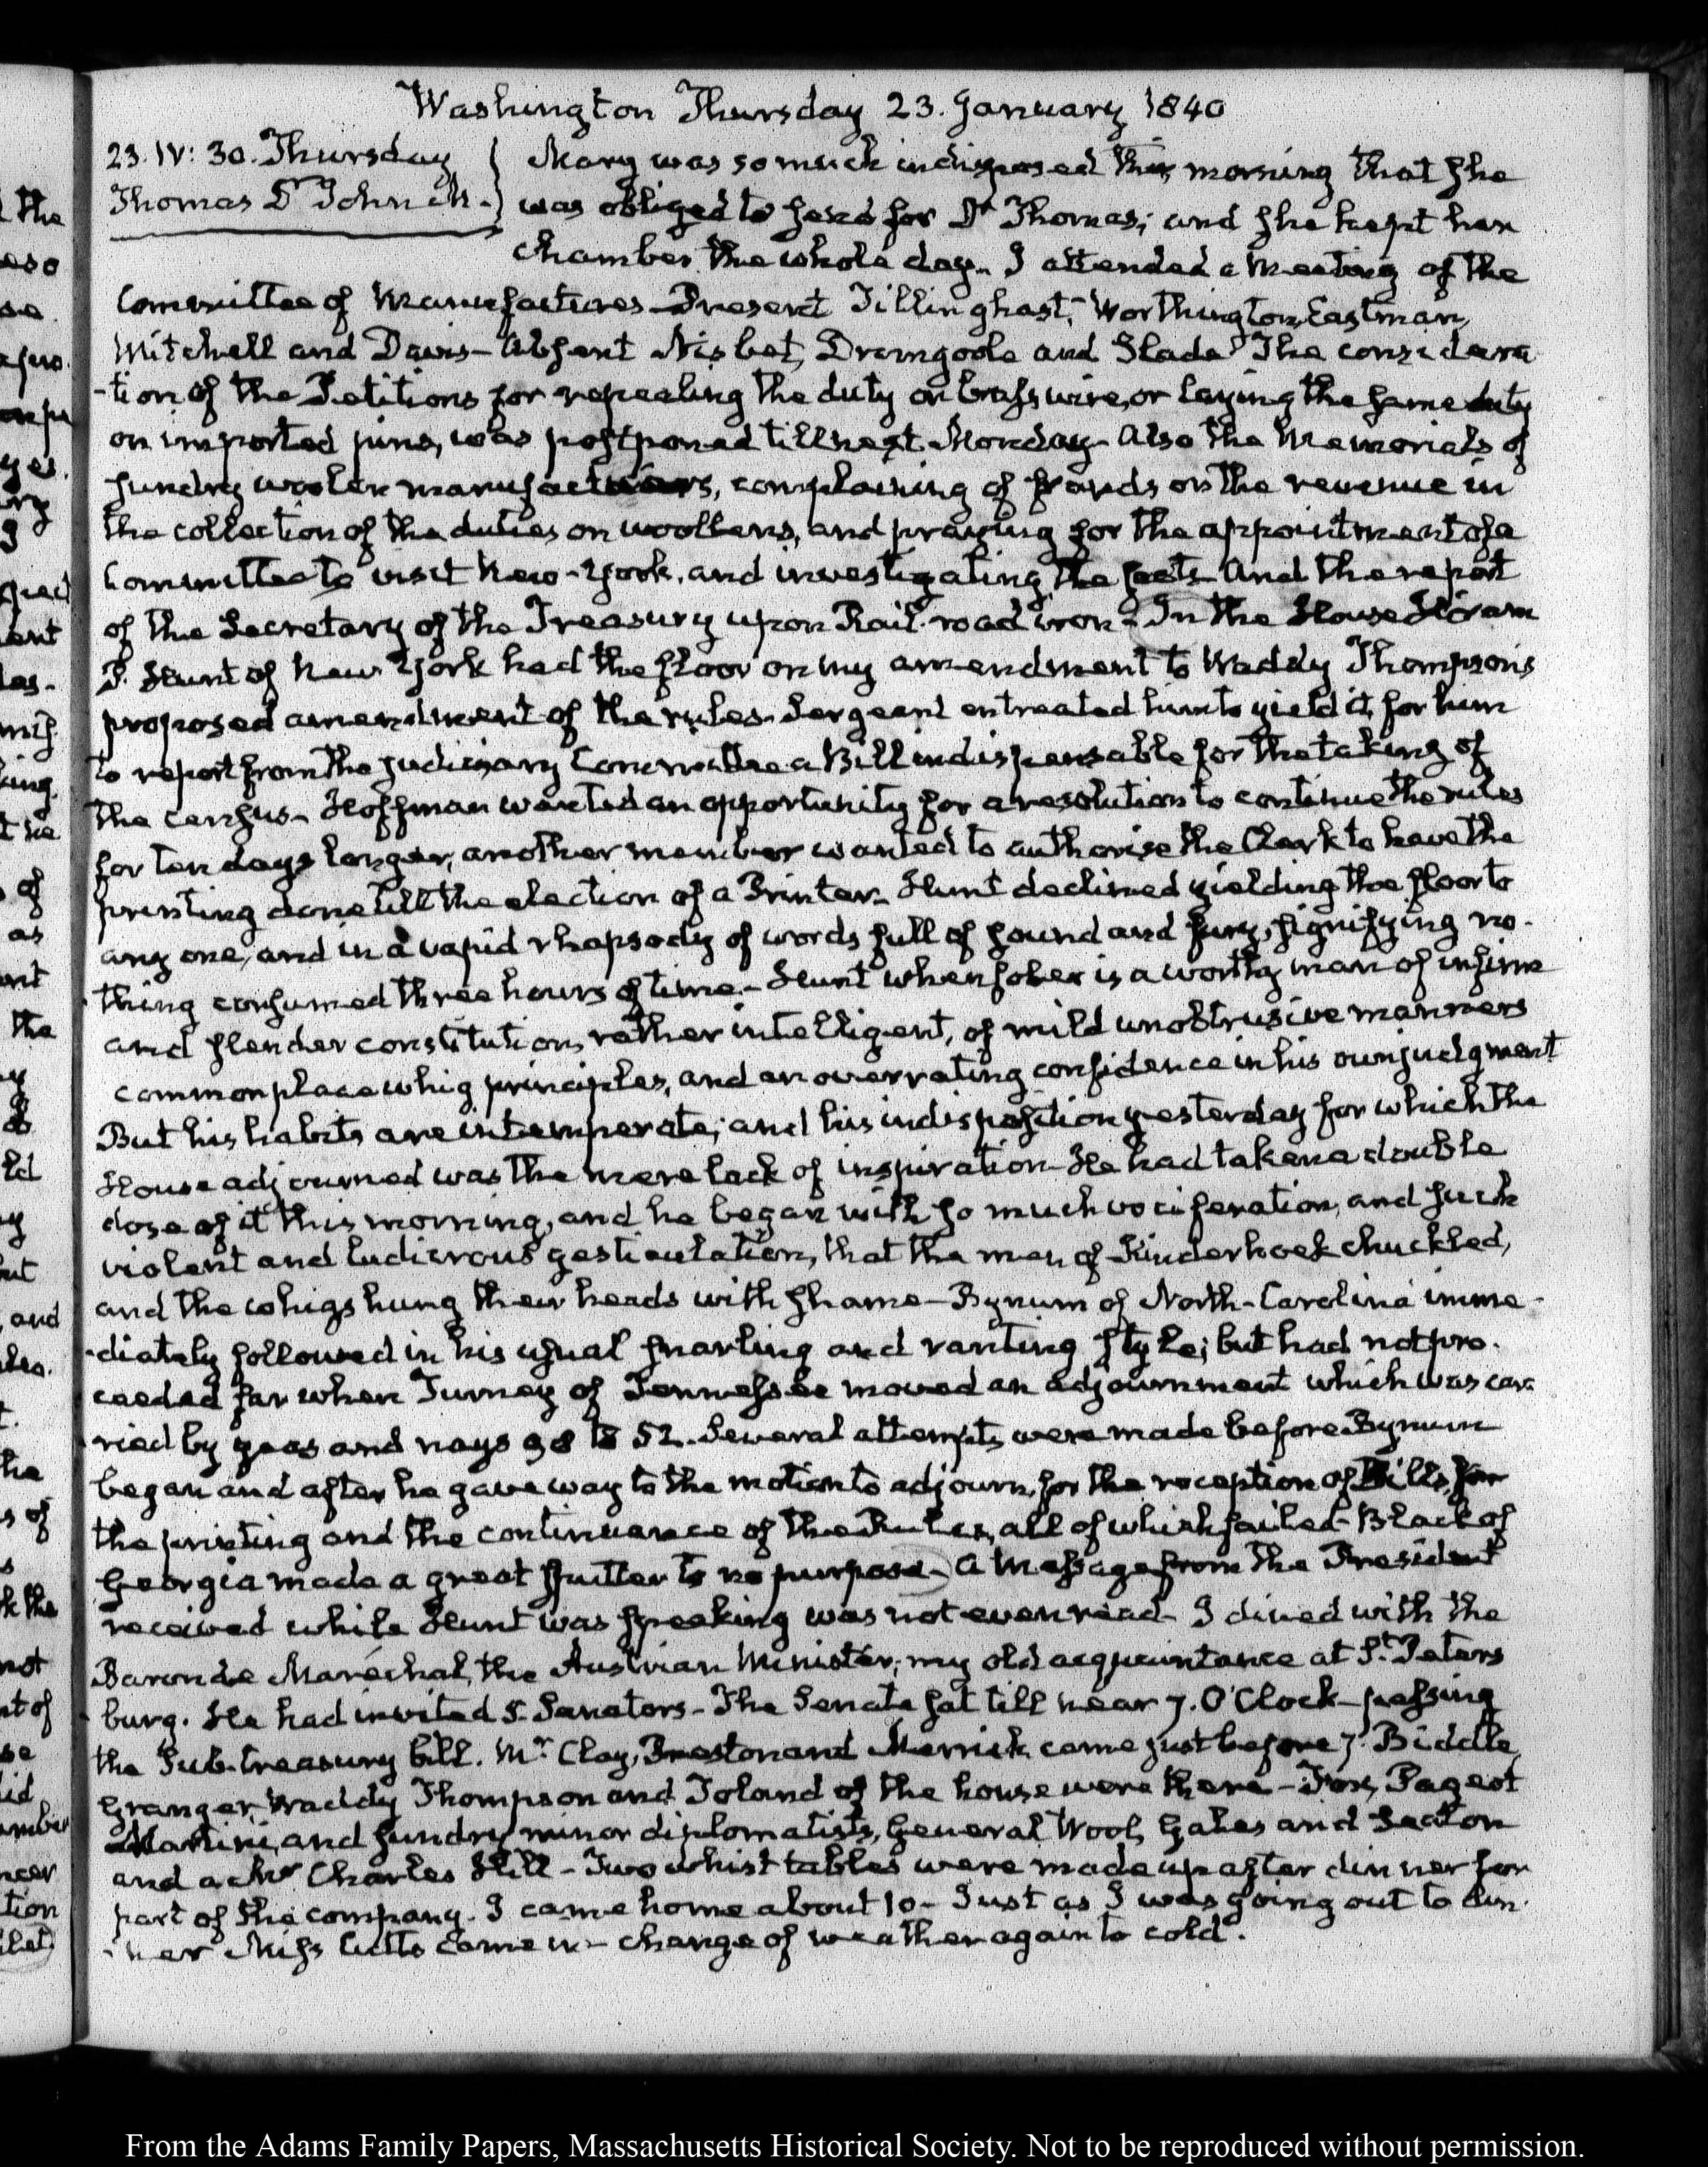 Washington Thursday 23. January 1840
23. IV: 30. Thursday
Thomas Dr John H.
Mary was so much indisposed this morning that she
was obliged to send for Dr Thomas; and she kept her
chamber the whole day. I attended a Meeting of the
Committee of Manufactures – Present Tillinghast, Worthington, Eastman,
Mitchell and Davis – Absent Nisbet, Dromgoole and Slade. The considera
-tion of the Petitions for repealing the duty on brass wire, or laying the same duty
on imported pins, was postponed till next Monday – Also the Memorials of
sundry woolen manufacturers, complaining of frauds on the revenue in
the collection of the duties on woollens, and praying for the appointment of a
Committee to visit New-York, and investigating the facts – And the report
of the Secretary of the Treasury upon Rail-road iron – In the House Hiram
P. Hunt of New York had the floor on my amendment to Waddy Thompson's
proposed amendment of the rules. Sergeant entreated him to yield it, for him
to report from the Judiciary Committee a Bill indispensable for the taking of
the census – Hoffman wanted an opportunity for a resolution to continue the rules
for ten days longer, another member wanted to authorise the Clerk to have the
printing done till the election of a Printer – Hunt declined yielding the floor to
any one, and in a vapid rhapsody of words full of sound and fury, signifying no-
thing consumed three hours of time. – Hunt when sober is a worthy man of infirm
and slender constitution, rather intelligent, of mild unobtrusive manners
commonplace whig principles, and an overrating confidence in his own judgment
But his habits are intemperate; and his indisposition yesterday for which the
House adjourned was the mere lack of inspiration – He had taken a double
dose of it this morning, and he began with so much vociferation, and such
violent and ludicrous gesticulation, that the men of Kinderhook chuckled,
and the whigs hung their heads with shame – Bynum of North-Carolina imme-
-diately followed in his usual snarling and ranting style; but had not pro-
ceeded far when Turney of Tennessee moved an adjournment which was car
ried by yeas and nays 98 to 52. Several attempts were made before Bynum
began and after he gave way to the motion to adjourn, for the reception of Bills, for
the printing and the continuance of the Rules, all of which failed – Black of
Georgia made a great splutter to no purpose – A Message from the President
received while Hunt was speaking was not even read – I dined with the
Baron de Maréchal, the Austrian Minister, my old acquaintance at St. Peters
burg. He had invited 5 Senators – The Senate sat till near 7. O'Clock – passing
the Sub-treasury bill. Mr. Clay, Preston and Merrick came just before 7. Biddle,
Granger, Waddy Thompson and Toland of the house were there – Fox, Pageot
Martini, and sundry minor diplomatists, General Wool, Gales and Seaton
and a Mr Charles Hill – Two whist tables were made up after dinner for
part of the company. I came home about 10 – Just as I was going out to din-
-ner Miss Cutts came in – change of weather again to cold.
From the Adams Family Papers, Massachusetts Historical Society. Not to be reproduced without permission.